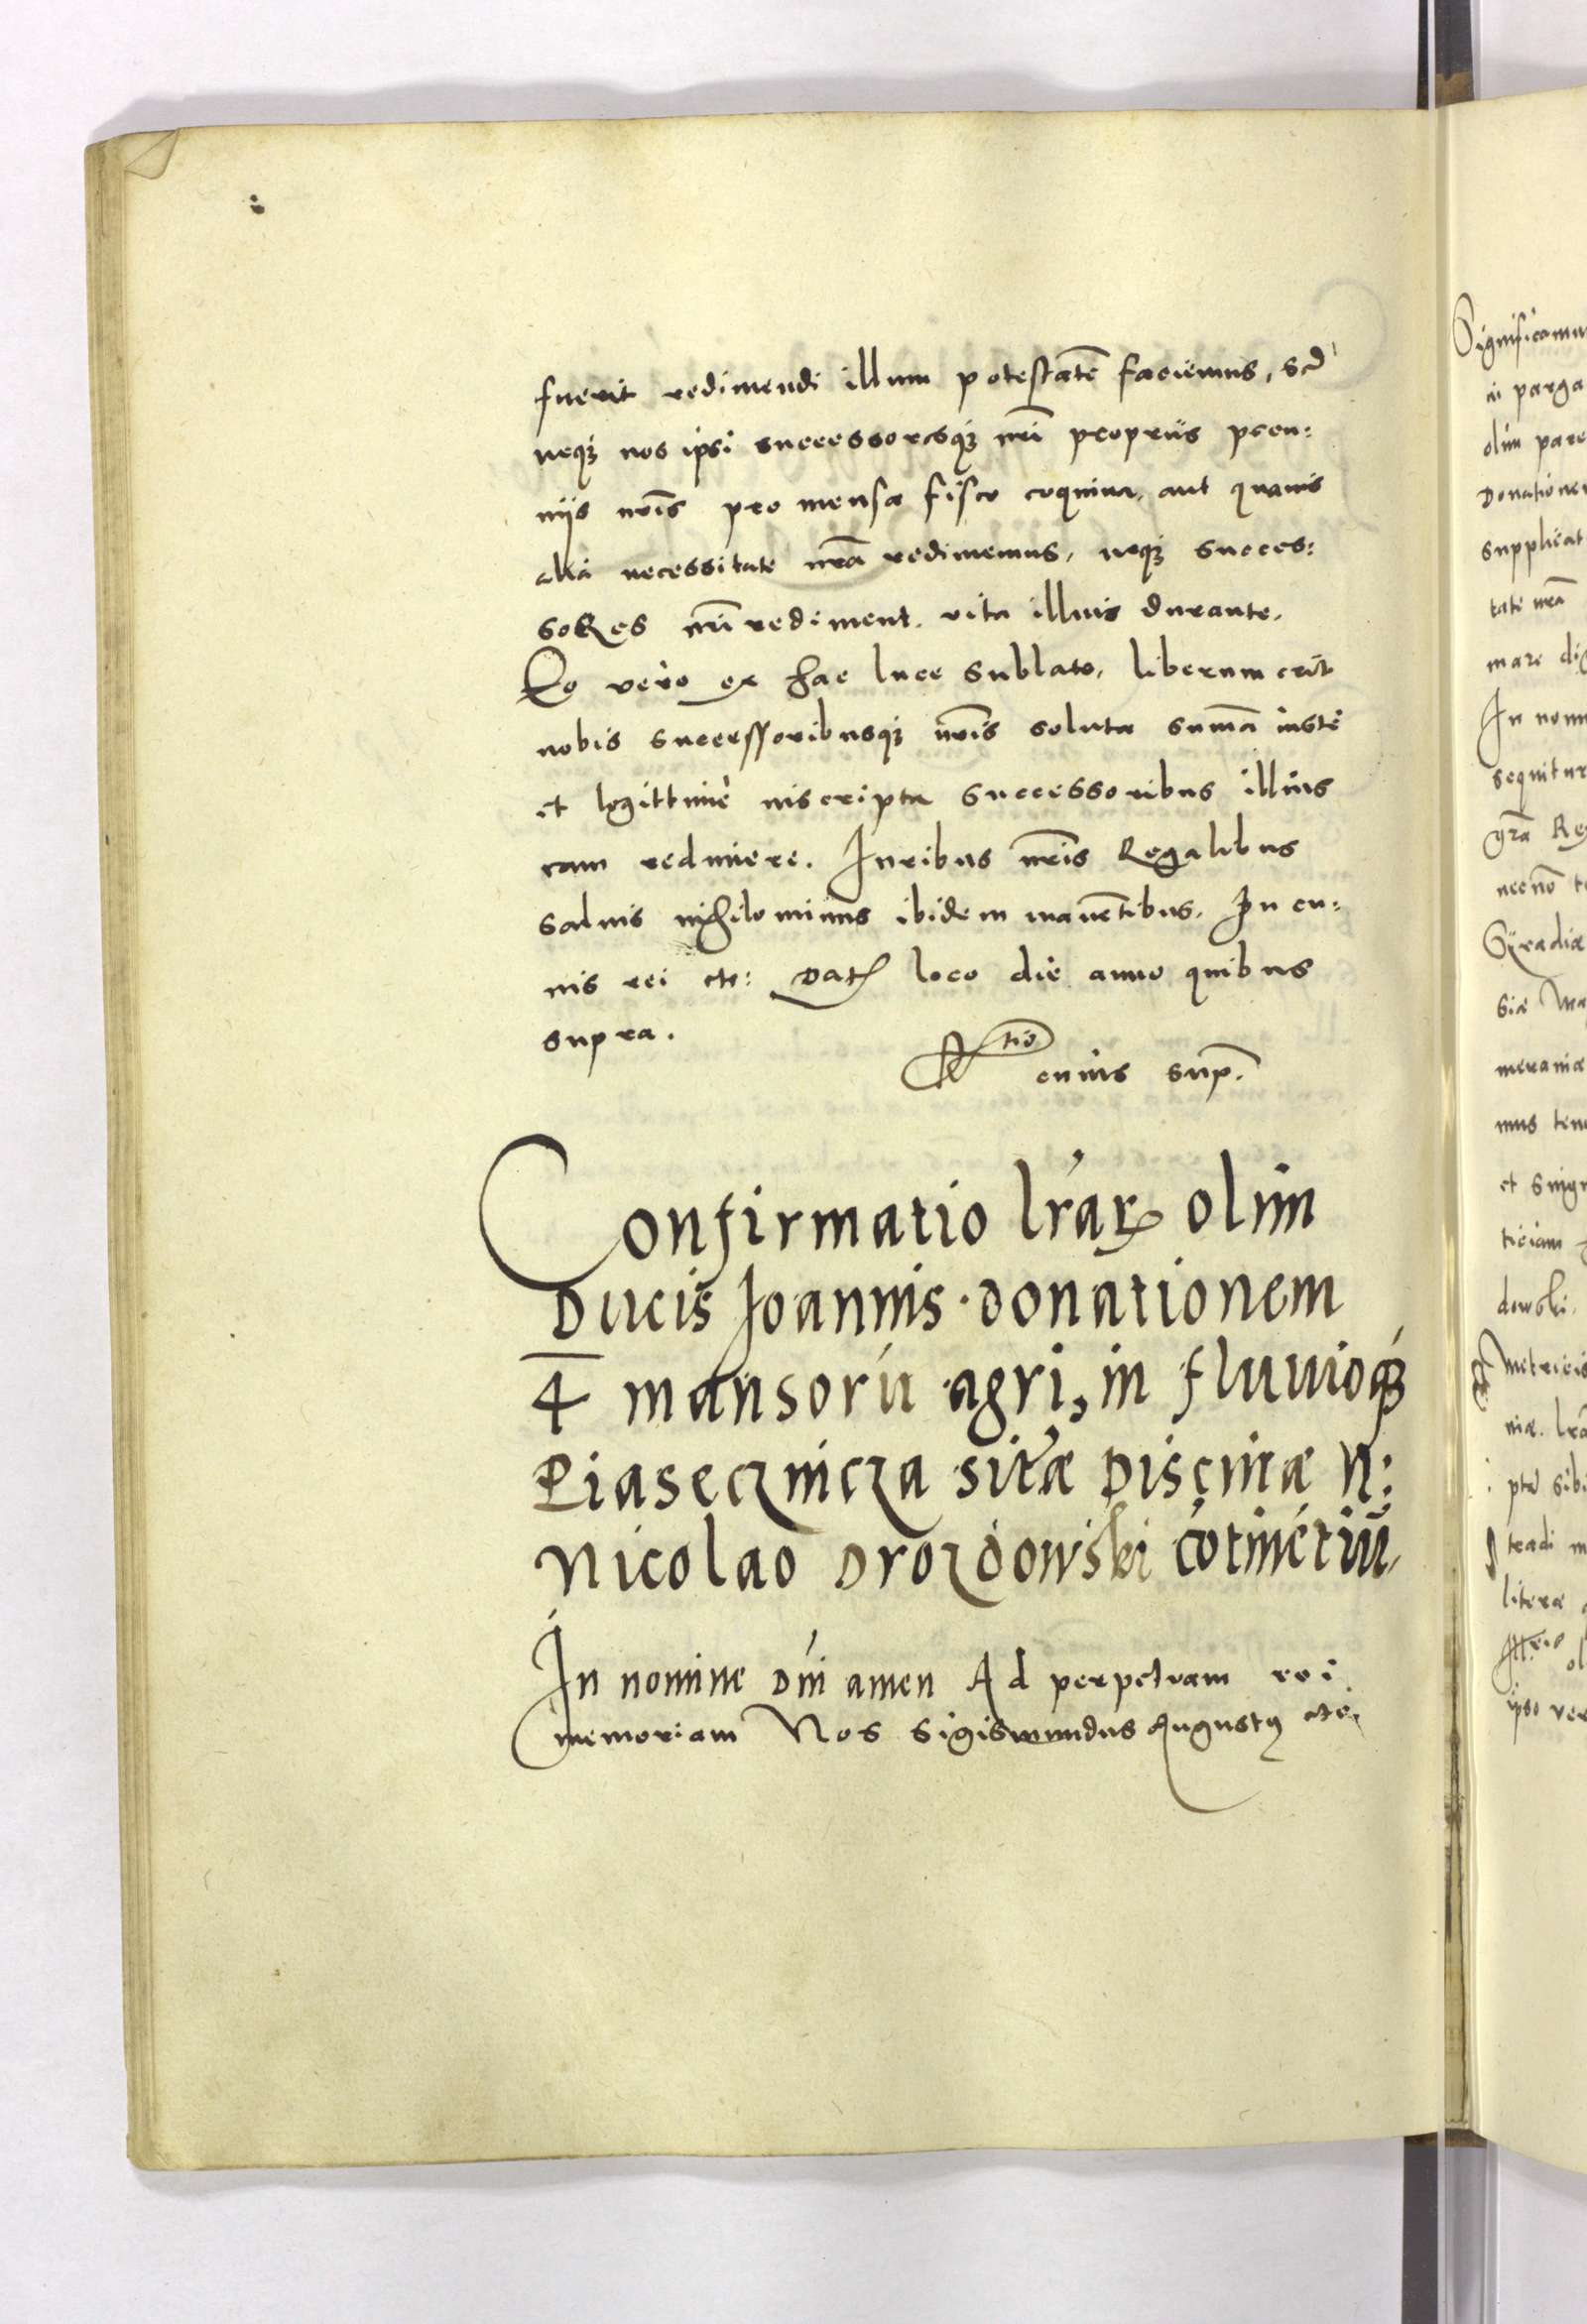 fuerit redimendi illum potestatē faciemus, sed
neqȝ nos ipsi successoresqȝ nr̄i proprijs pecu:
nijs nr̄is pro mensa fisco coquina, aut quauis
alia necessitate nr̄a redimemus, neqȝ succes:
sores nr̄i rediment, vita illius durante.
Eo vero ex hac luce sublato, liberum erit
nobis successoribusqȝ nr̄is soluta sum̄a iuste
et legittimè inscripta successoribus illius
eam redimere. Iuribus nr̄is Regalibus
saluis nihilominus ibidem manētibus. In cu:
ius rei etc: Datꝭ loco die anno quibus
supra.
Rtio cuius sup.
Confirmatio lr̄arꝝ olim
Ducis Joannis donationem
4 mansorū agri, in fluuioqȝ
Piasecznicza sitæ piscinæ N:
Nicolao Drozdowski cōtinētiū,
In nomine Dni amen Ad perpetuam rei
memoriam Nos Sigismundus Augustꝯ etc.
Significamus
parga
olim pare
Donatione
supplicat
tati nr̄a
mare dig
In nom
sequitur
gr̄a Re
necnō t
Siradiæ
siæ Ma
meraniæ
mus ten
et singu
ticiam
dowski.
metricis
niæ. lr̄a
sibi
tradi
literæ
ipso ver